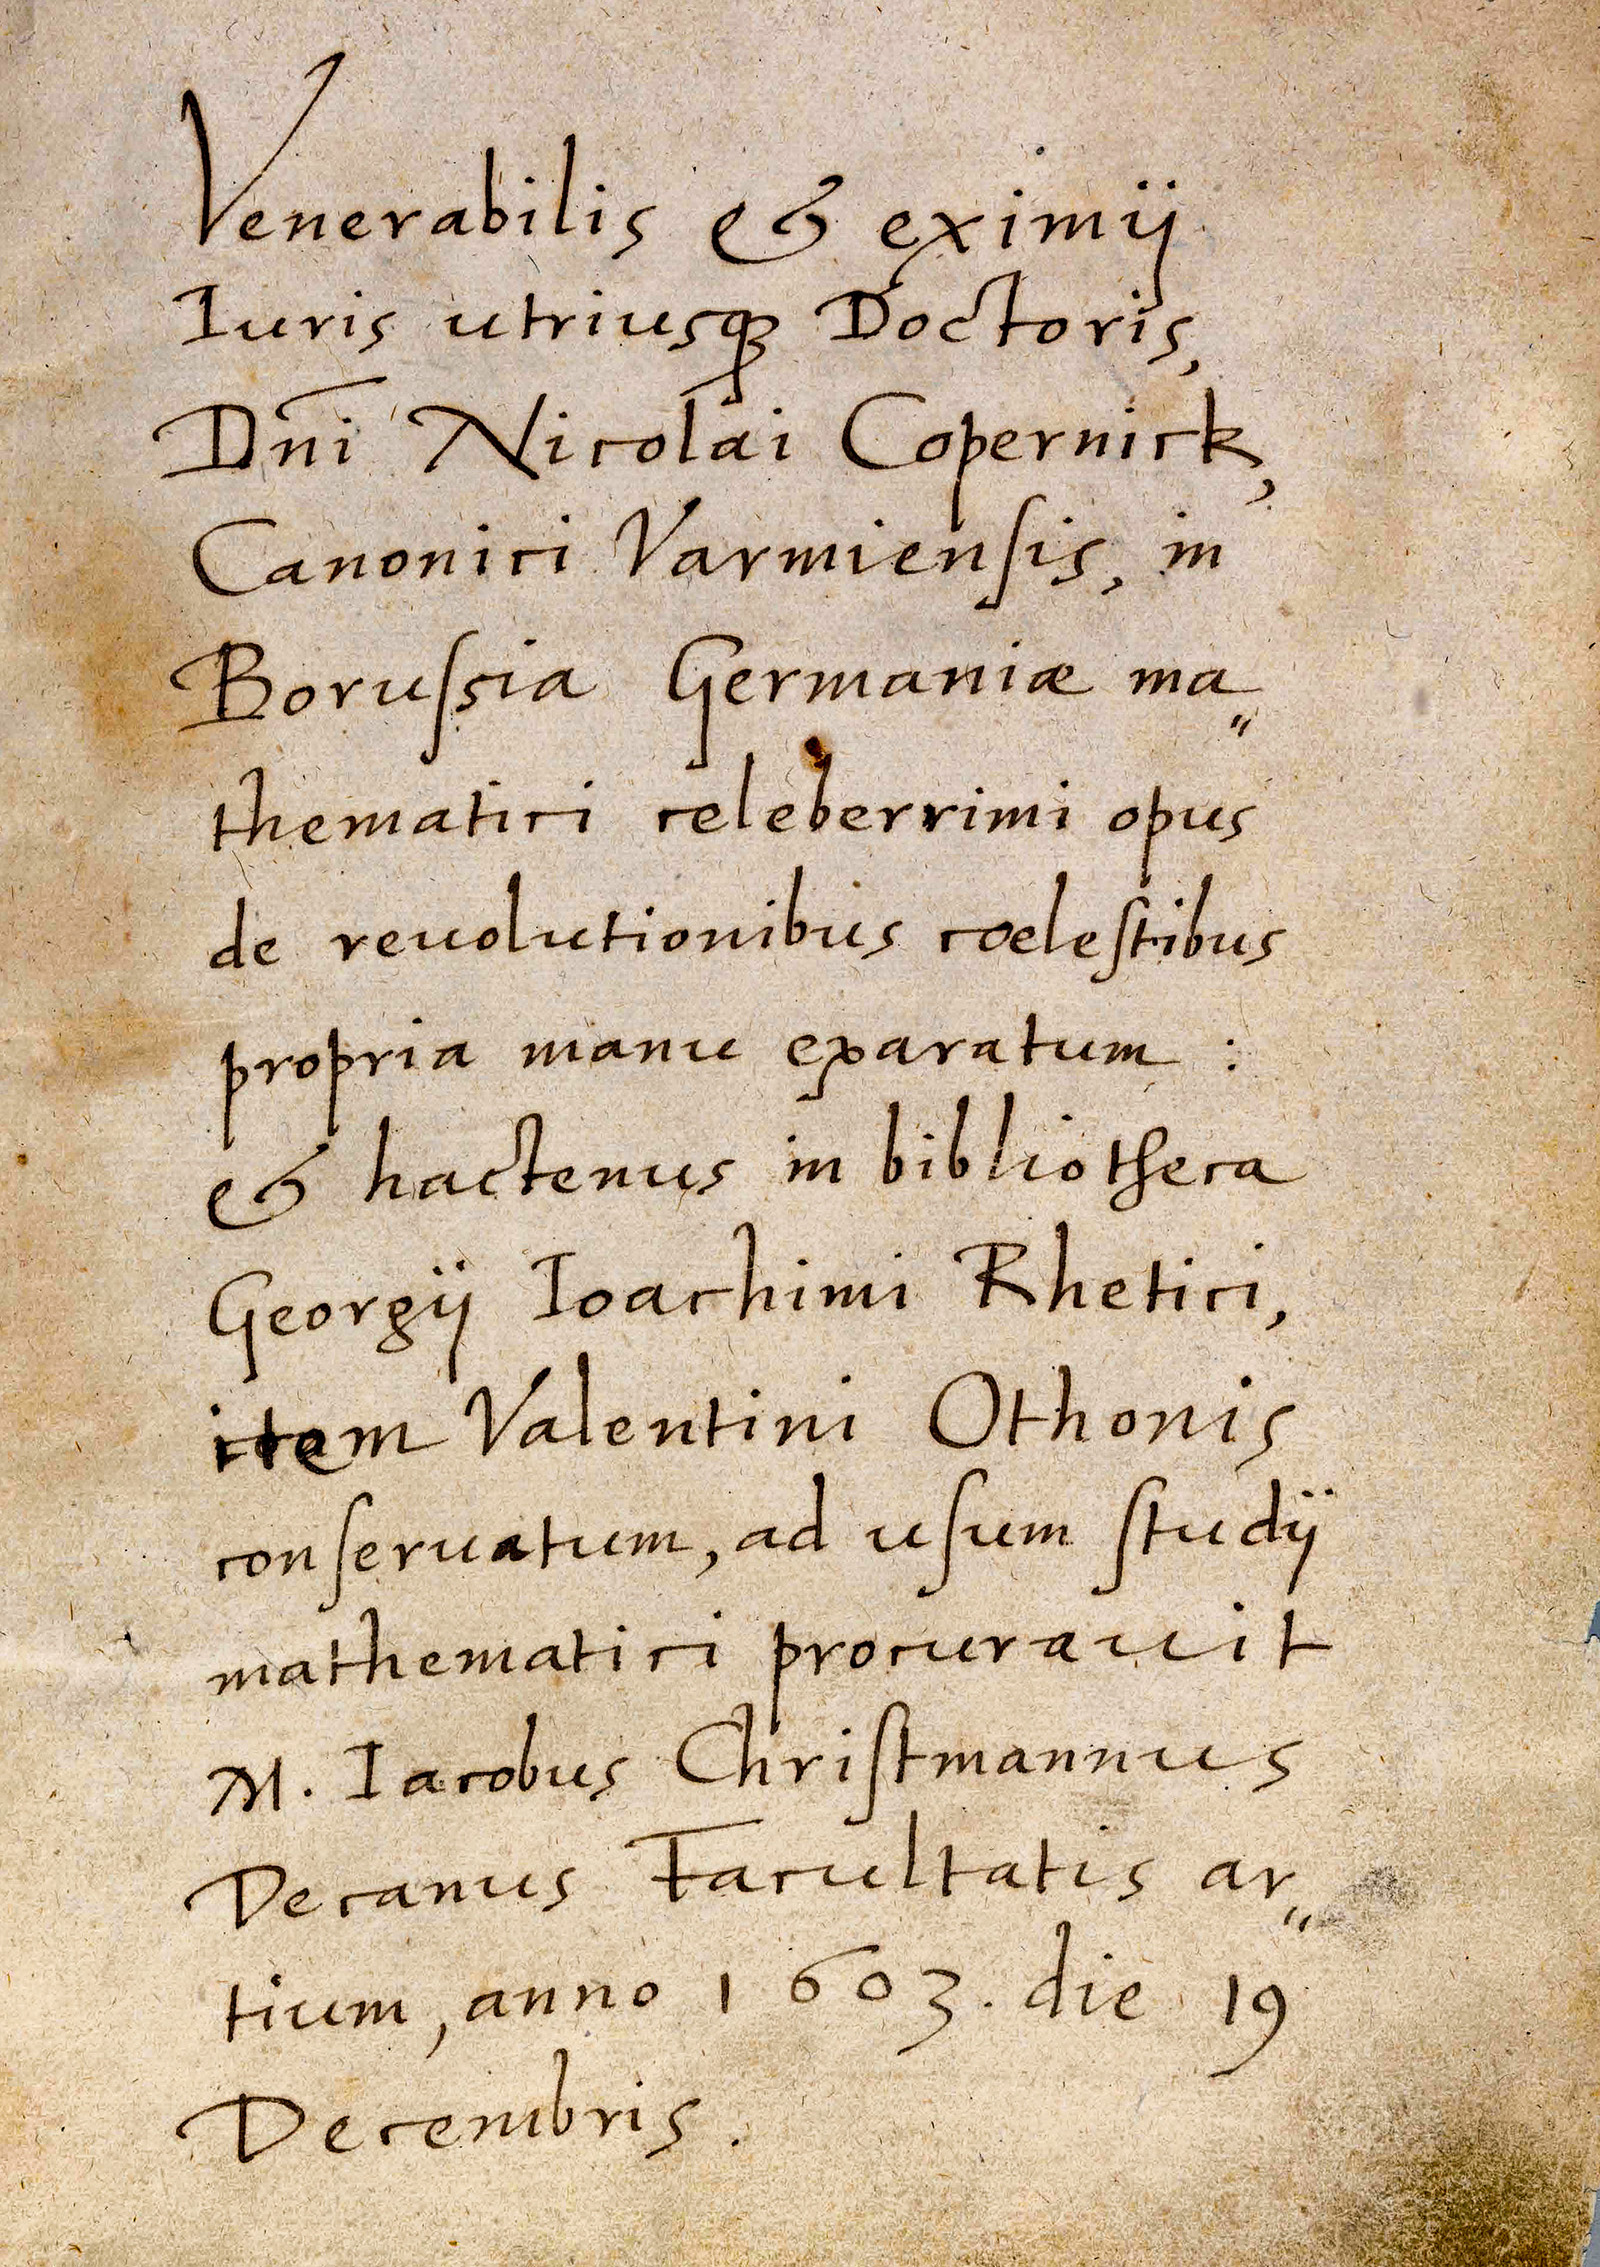 Venerabilis & eximij
Iuris utriusqꝫ Doctoris,
Dn̄i Nicolai Copernick,
Canonici Varmienſis, in
Boruſsia Germaniæ ma„
thematici celeberrimi opus
de reuolutionibus cœleſtibus
propria manu exaratum :
& hactenus in bibliotheca
Georgij Ioachimi Rhetici,
item Valentini Othonis
conſeruatum, ad uſum ſtudij
mathematici procurauit
M. Iacobus Chriſtmannus
Decanus Facultatis ar„
tium, anno 1603. die 19
Decembris.